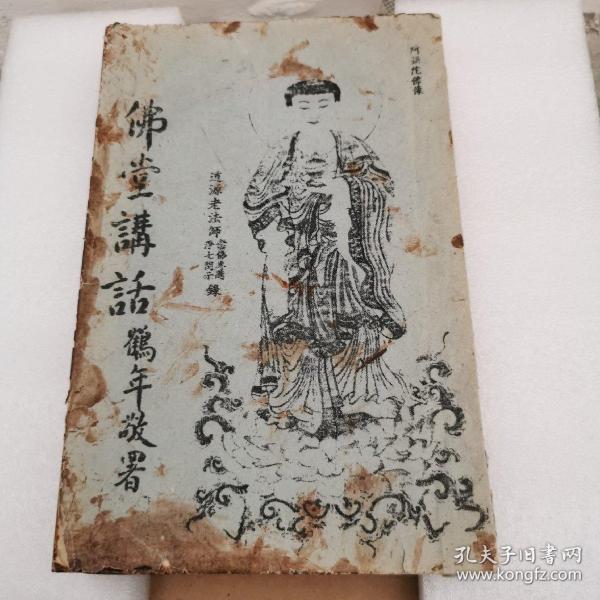 阿彌陀佛像
道源老法師
念佛要適
淨七開示
錄
佛堂講話
鶴年敬署
孔夫子旧书网
www.kongfz.com